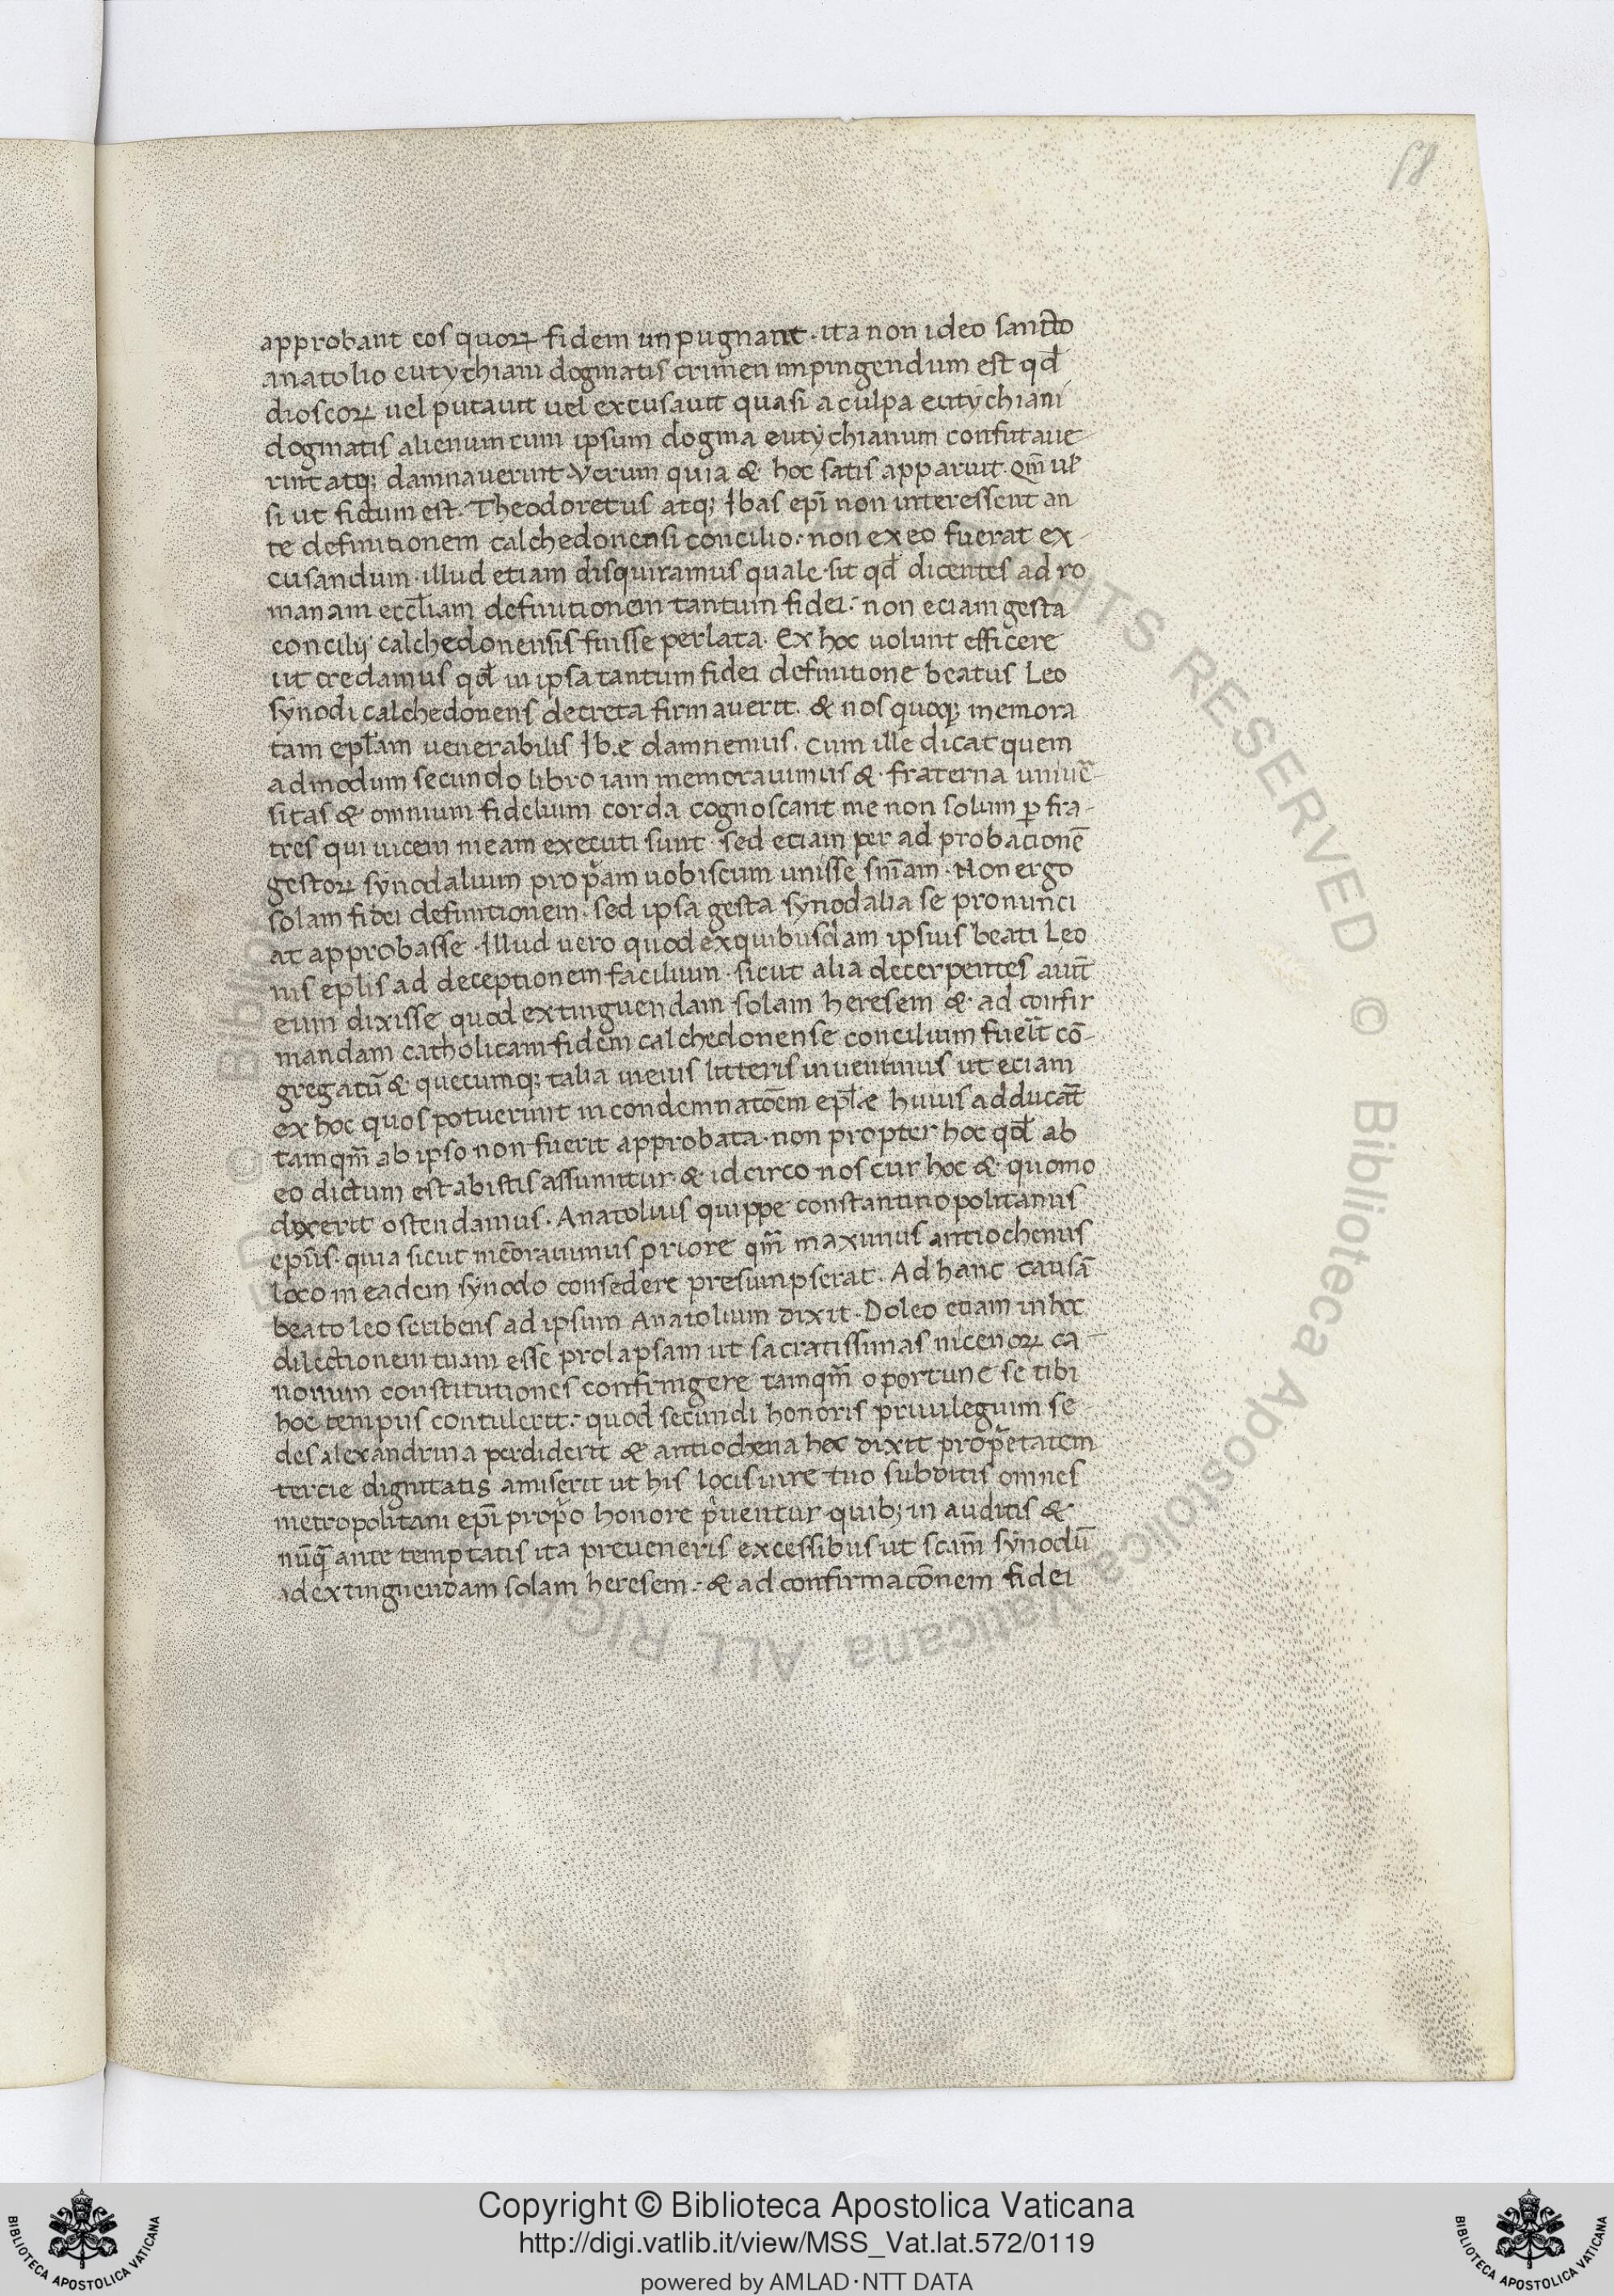 58
approbant eos quoꝝ fidem inpugnant · ita non ideo sancto
anatolio eutychiani dogmatis crimen inpingendum est qđ
dioscoꝝ uel putauit uel excusauit quasi a culpa eutychiani
dogmatis alienum cum ipsum dogma eutychianum confutaue-
rint atq; damnauerint. Verum quia & hoc satis apparuit. Qm̄ ul̄
si ut fictum est. Theodoretus atq; Ibas ep̄i non interessent an
te definitionem calchedonensi concilio · non ex eo fuerat ex-
cusandum · illud etiam disquiramus quale sit qđ dicentes ad ro
manam eccl̄iam definitionem tantum fidei · non eciam gesta
concilij calchedonensis fuisse perlata. Ex hoc uolunt efficere
ut credamus qđ in ipsa tantum fidei definitione beatus Leo
synodi calchedonens decreta firmauerit. & nos quoq; memora
tam epl̄am uenerabilis Ibę damnemus. Cum ille dicat quem
admodum secundo libro iam memorauimus & fraterna uniuer̄-
sitas & omnium fidelium corda cognoscant me non solum ꝑ fra-
tres qui uicem meam executi sunt · sed eciam per ad probacionē
gestoꝝ synodalium prop̄am uobiscum unisse sn̄iam · Non ergo
solam fidei definitionem · sed ipsa gesta synodalia se pronunci
at approbasse · Illud uero quod ex quibusdam ipsius beati Leo
nis epl̄is ad deceptionem facilium · sicut alia decerpentes aiūt
eum dixisse quod extinguendam solam heresem & ad confir
mandam catholicam fidem calchedonense concilium fuer̄it cō-
gregatū & quecumq; talia in eius litteris inuenimus ut eciam
ex hoc quos potuerint in condemnatōem epl̄æ huius adducāt
tamqm̄ ab ipso non fuerit approbata · non propter hoc qđ ab
eo dictum est ab istis assumitur & idcirco nos cur hoc & quomo
dixerit ostendamus. Anatolius quippe constantinopolitanus
ep̄us · quia sicut mēorauimus priore qm̄ maximus antiochenus
loco in eadem synodo consedere presumpserat. Ad hanc causā
beato leo scribens ad ipsum Anatolium dixit · Doleo etiam in hoc
dilectionem tuam esse prolapsam ut sacratissimas nicenoꝝ ca-
nonum constitutiones confringere tamqm̄ oportune se tibi
hoc tempus contulerit · quod secundi honoris priuilegium se
des alexandrina perdiderit & antiochena hec dixit prop̄etatem
tercie dignitatis amiserit ut his locis iure tuo subditis omnes
metropolitani ep̄i prop̄o honore p̄uentur · quib; in auditis &
nūq̄ ante temptatis ita preueneris excessibus ut scam̄ synodū
ad extinguendam solam heresem · & ad confirmacōnem fidei
Copyright © Biblioteca Apostolica Vaticana
http://digi.vatlib.it/view/MSS_Vat.lat.572/0119
powered by AMLAD·NTT DATA